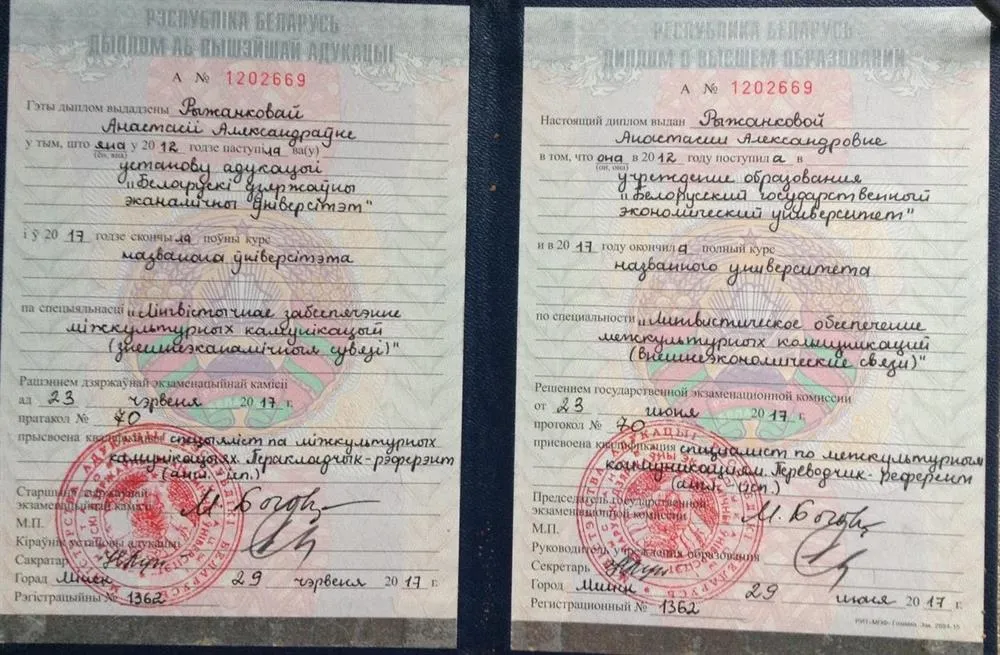 РЭСПУБЛІКА БЕЛАРУСЬ
ДЫПЛОМ АБ ВЫШЭЙШАЙ АДУКАЦЫІ
А № 1202669
Гэты дыплом выдадзены Рыжанковай
Анастасіі Александраўне
у тым, што яна у 2012 годзе паступіла ва(у)
(ён, яна)
установу адукацыі
"Беларускі дзяржаўны
эканамічны ўніверсітэт"
і ў 2017 годзе скончыла поўны курс
названага ўніверсітэта
па спецыяльнасці "Лінгвістычнае забеспячэнне
міжкультурных камунікацый
(знешнеэканамічныя сувязі)"
Рашэннем дзяржаўнай экзаменацыйнай камісіі
ад 23 чэрвеня 2017 г.
пратакол № 70
прысвоена кваліфікацыя спецыяліст па міжкультурных
камунікацыях. Перакладчык-рэферэнт
(англ. ісп.)
Старшыня дзяржаўнай
экзаменацыйнай камісіі
М.П.
Кіраўнік установы адукацыі
Сакратар
Горад Мінск 29 чэрвеня 2017 г.
Рэгістрацыйны № 1362
РЕСПУБЛИКА БЕЛАРУСЬ
ДИПЛОМ О ВЫСШЕМ ОБРАЗОВАНИИ
А № 1202669
Настоящий диплом выдан Рыжанковой
Анастасии Александровне
в том, что она в 2012 году поступила в
(он, она)
учреждение образования
"Белорусский государственный
экономический университет"
и в 2017 году окончила полный курс
названного университета
по специальности "Лингвистическое обеспечение
межкультурных коммуникаций
(внешнеэкономические связи)"
Решением государственной экзаменационной комиссии
от 23 июня 2017 г.
протокол № 70
присвоена квалификация специалист по межкультурным
коммуникациям. Переводчик-референт
(англ. исп.)
Председатель государственной
экзаменационной комиссии
М.П.
Руководитель учреждения образования
Секретарь
Город Минск 29 июня 2017 г.
Регистрационный № 1362